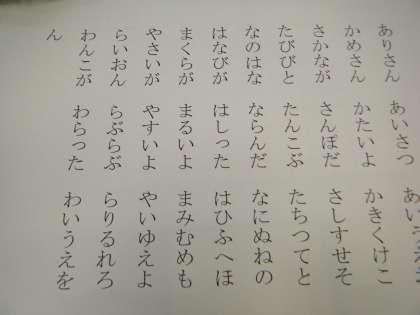 ありさん あいさつ あいうえお
かめさん かたいよ かきくけこ
さかなが さんぽだ さしすせそ
たびびと たんこぶ たちつてと
なのはな ならんだ なにぬねの
はなびが はしった はひふへほ
まくらが まるいよ まみむめも
やさいが やすいよ やいゆえよ
らいおん らぶらぶ らりるれろ
わんこが わらった わいうえを
ん